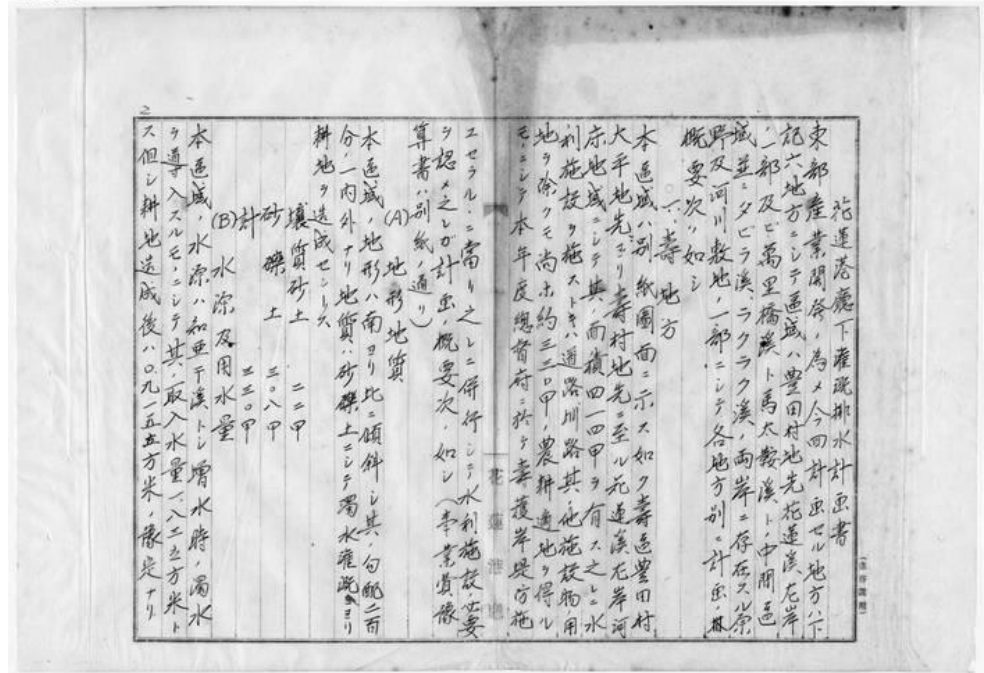 花蓮港廳下灌漑排水計画書
東部産業開發ノ為メ今回計画セル地方ハ下
記六地方ニシテ區域ハ豊田村地先花蓮溪左岸
ノ一部及ビ萬里橋溪ト馬太鞍溪トノ中間區
域並ニタビラ溪、ラクラク溪ノ両岸ニ存在スル原
野及河川敷地ノ一部ニシテ各地方別ニ計画ノ
概要次ノ如シ
一、壽地方
本區域ハ別紙圖面ニ示ス如ク壽區豊田村
大平地先ヨリ壽村地先ニ至ル花蓮溪左岸河
床地域ニシテ其ノ面積四一四甲ヲ有ス之レニ水
利施設ヲ施ストキハ道路圳路其ノ他施設物用
地ヲ除クモ尚ホ約三三〇甲ノ農耕適地ヲ得ル
モノニシテ本年度總督府ニ於テ壽護岸堤防施
工セラルヽニ當リ之レニ併行シテ水利施設ノ必要
ヲ認メ之レガ計画ノ概要次ノ如シ(事業費豫
算書ハ別紙ノ通リ)
(A) 地形地質
本區域ノ地形ハ南ヨリ北ニ傾斜シ其ノ勾配二百
分ノ一内外ナリ地質ハ砂礫土ニシテ濁水灌漑ニヨリ
耕地ヲ造成セントス
壤質砂土 二二甲
砂礫土 三〇八甲
計 三三〇甲
(B) 水源及用水量
本區域ノ水源ハ知亞干溪トシ增水時ノ濁水
ヲ導入スルモノニシテ其ノ取入水量一、八三立方米ト
ス但シ耕地造成後ハ〇、九一五立方米ノ豫定ナリ
花蓮港廳
2